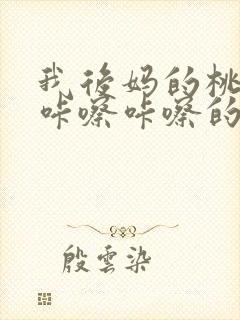 我後妈的桃
咔嚓咔嚓的
殷雲染